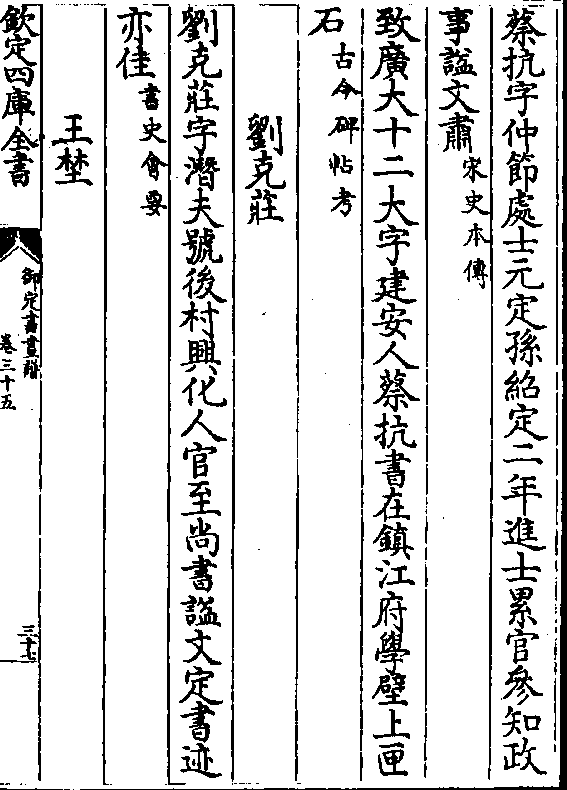 蔡抗字仲節處士元定孫紹定二年進士累官參知政
事諡文肅宋史本傳
致廣大十二大字建安人蔡抗書在鎮江府學壁上匣
石古今碑帖考
劉克莊
劉克莊字潛夫號後村興化人官至尚書諡文定書迹
亦佳書史會要
王埜
欽定四庫全書
御定書畫譜
卷三十五
三十七